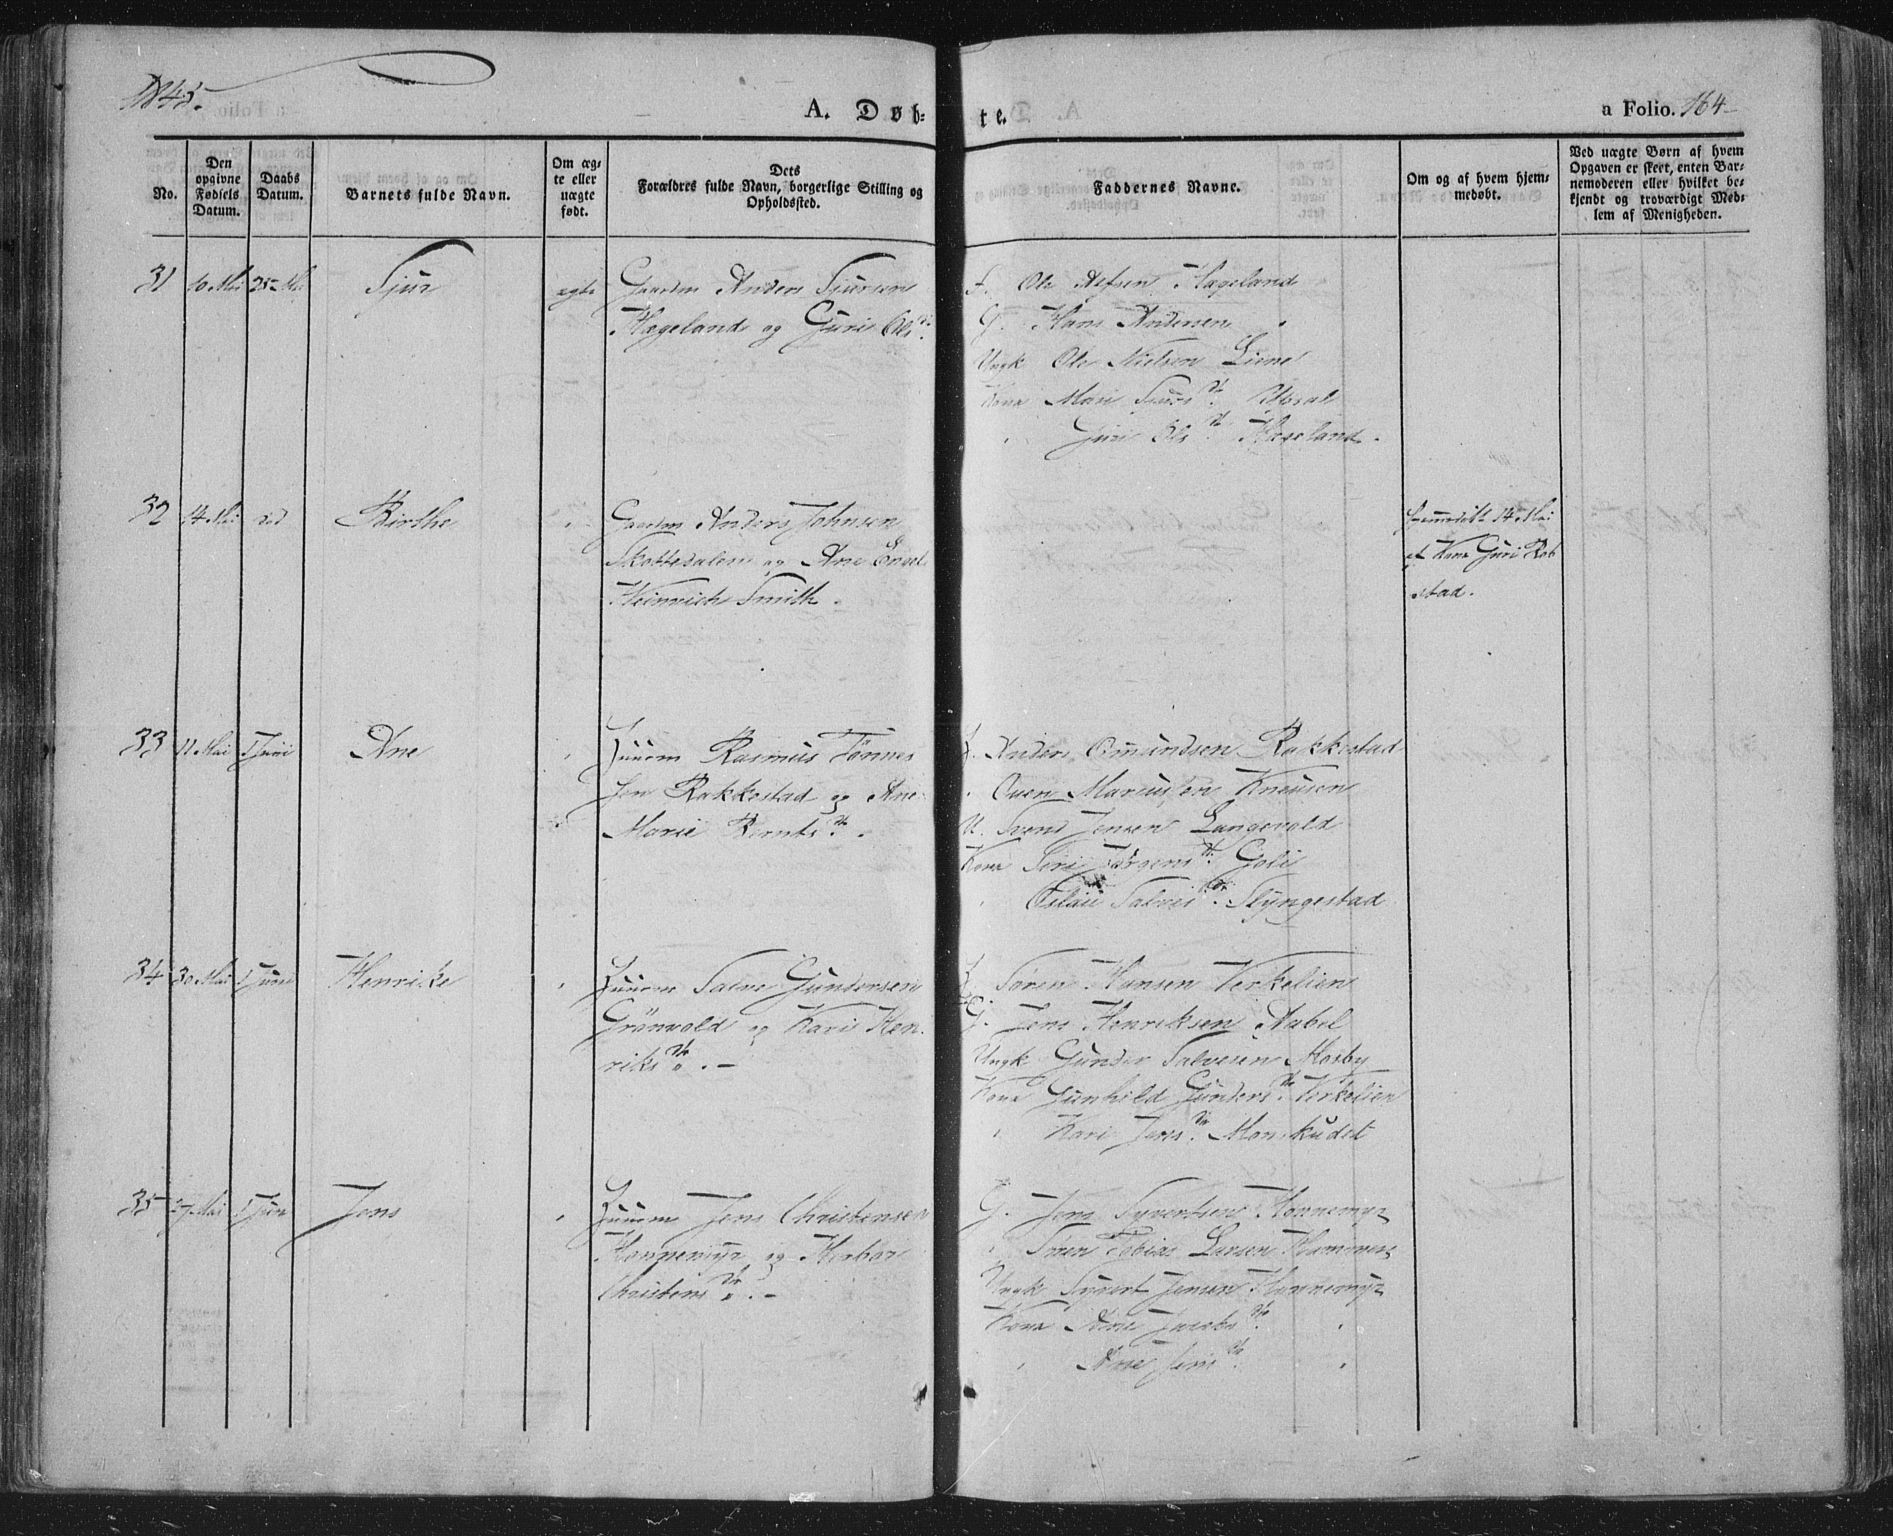 1845.
A. Døb=
te.
a Folio. 164
No.
Den
opgivne
Fødsels
Datum.
Daabs
Datum.
Barnets fulde Navn.
Om æg-
te eller
uægte
født.
Dets
Forældres fulde Navn, borgerlige Stilling og
Opholdssted.
Faddernes Navne.
Om og af hvem hjem-
medøbt.
Ved uægte Børn af hvem
Opgaven er skeet, enten Bar-
nemoderen eller hvilket be-
kjendt og troværdigt Med-
lem af Menigheden.
31 10 Mai 25 Mai Sjur ægte Gaardm Anders Sjursen
Hægeland og Guri Ols D.
F. Ole Hægeland
G. Hans Andersen "
Ungk Ole Nielsen Liene
Kona Mari Sjurs D. Upsal
" Guri Ols D. Hægeland.
32 14 Mai Birthe " Gaardm Anders Johnsen
Skottedalen og Ane Engel
Heinrich Smith.
Hjemmedøbt 14 Mai
af Kone Guri Rob
stad.
33 11 Mai 1 Juni Ane " Huusm Rasmus Tønnes
sen Rakkestad og Ane
Marie Bernts D.
H. Anders Omundsen Rakkestad
" Marcussen
U. Svend Jensen Langevold
Kona Siri Jørgens D.
" Aslau Salves D. Slyngestad
34 30 Mai 1 Juni Henrike " Huusm Salve Gundersen
Grønvold og Kari Hen
riks D. -
H. Søren Hansen Verkelien
G. Jens Henriksen Aabel
Ungk Gunder Salvesen Mosby
Kona Gunhild Gunders D. Verkelien
" Kari Jens D.
35 27 Mai 1 Jun Jens " Huusm Jens Christensen
Honnemyr og
Christens D. -
G. Jens Syvertsen Honnemyr
" Søren Tobias Larsen
Ungk Syvert Jensen Honnemyr
Kona Ane Jacobs D. "
" Ane Jens D. "